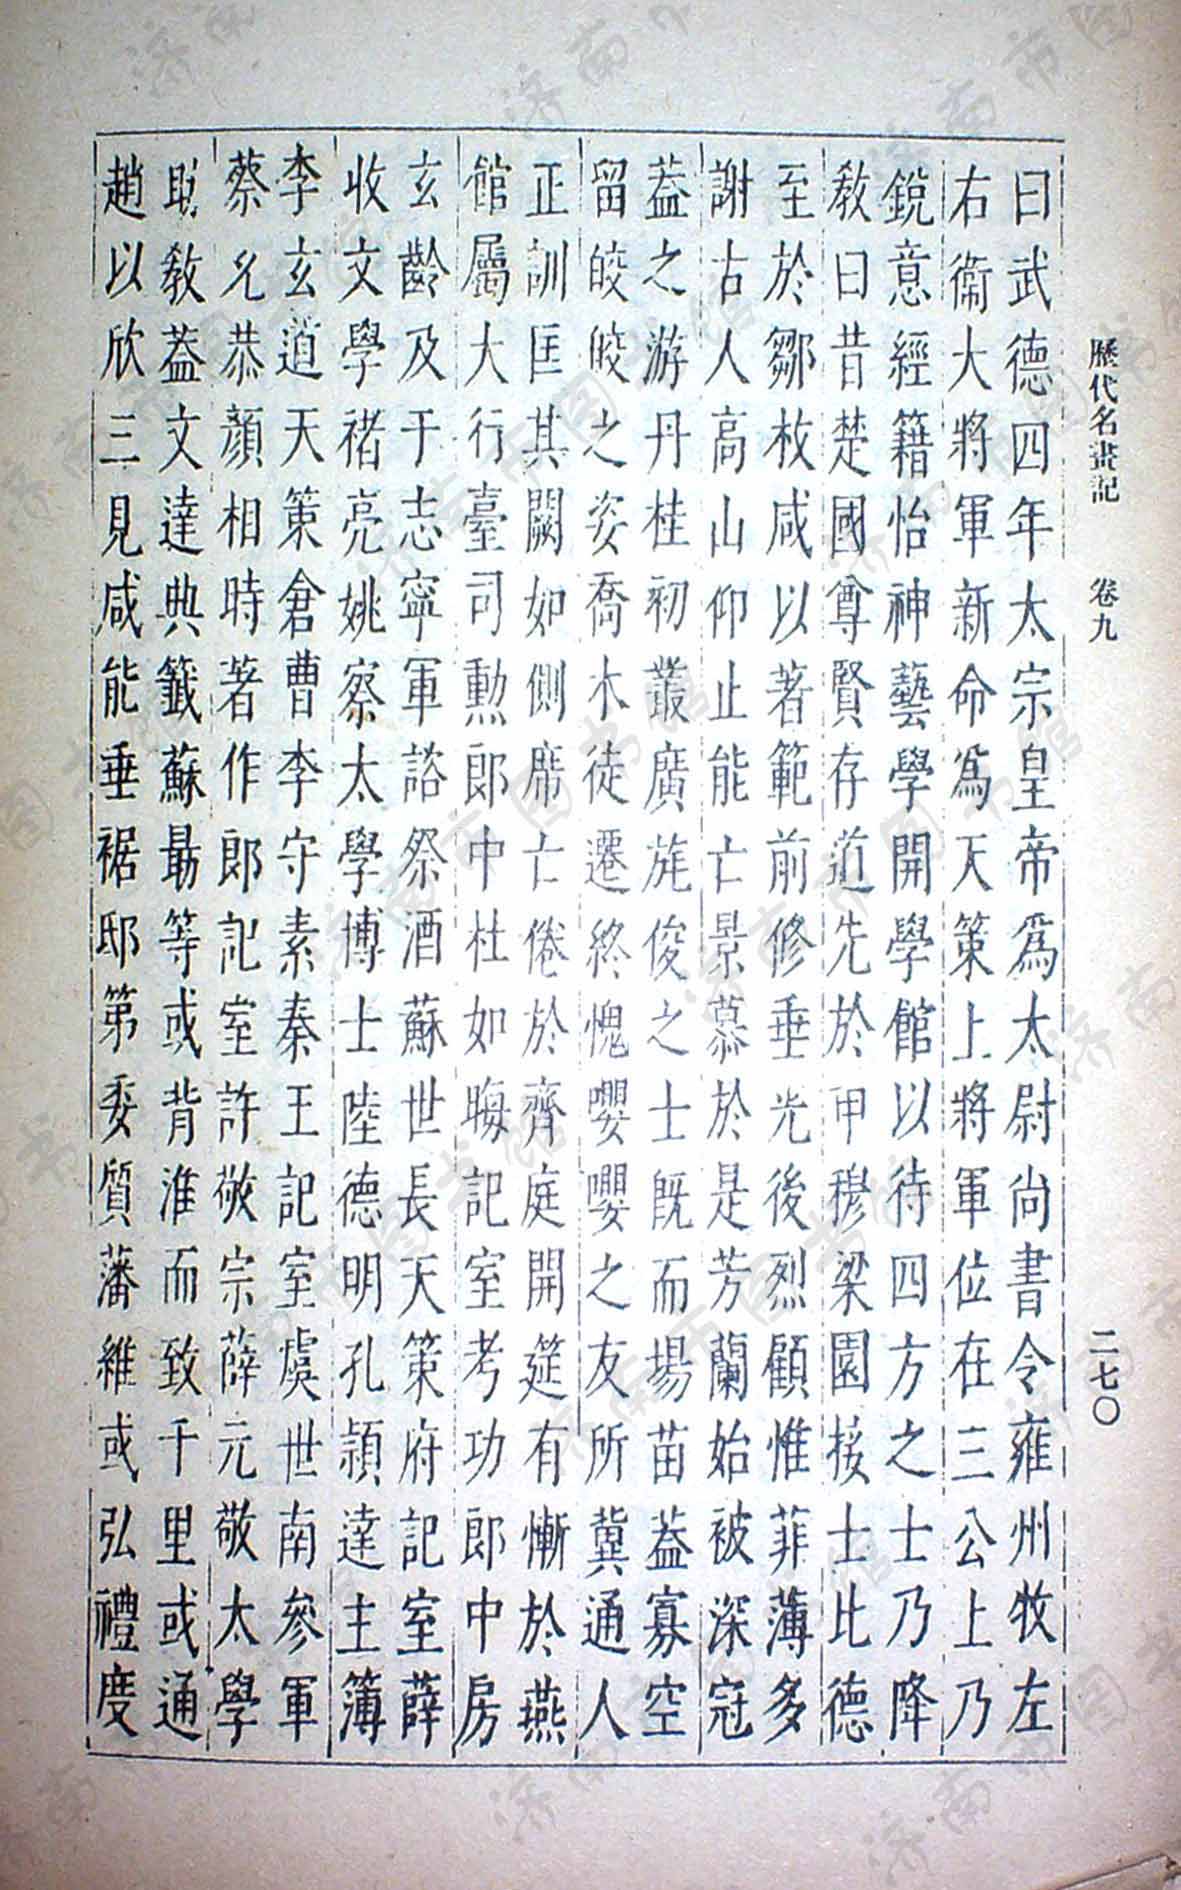 歷代名畫記 卷九 二七〇
曰武德四年太宗皇帝爲太尉尚書令雍州牧左
右衞大將軍新命爲天策上將軍位在三公上乃
銳意經籍怡神藝學開學館以待四方之士乃降
教曰昔楚國尊賢存道先於甲穆梁園接士比德
至於鄒枚咸以著範前修垂光後烈顧惟菲薄多
謝古人高山仰止能亡景慕於是芳蘭始被深冠
蓋之游丹桂初叢廣旄俊之士既而場苗蓋寡空
留皎皎之姿喬木徒遷終愧嚶嚶之友所冀通人
正訓匡其闕如側席亡倦於齊庭開筵有慚於燕
館屬大行臺司勳郎中杜如晦記室考功郎中房
玄齡及于志寧軍諮祭酒蘇世長天策府記室薛
收文學褚亮姚察太學博士陸德明孔潁達主簿
李玄道天策倉曹李守素秦王記室虞世南參軍
蔡允恭顏相時著作郎記室許敬宗薛元敬太學
助教蓋文達典籤蘇勗等或背淮而致千里或通
趙以欣三見咸能垂裾邸第委質藩維或弘禮度
济南市图书馆